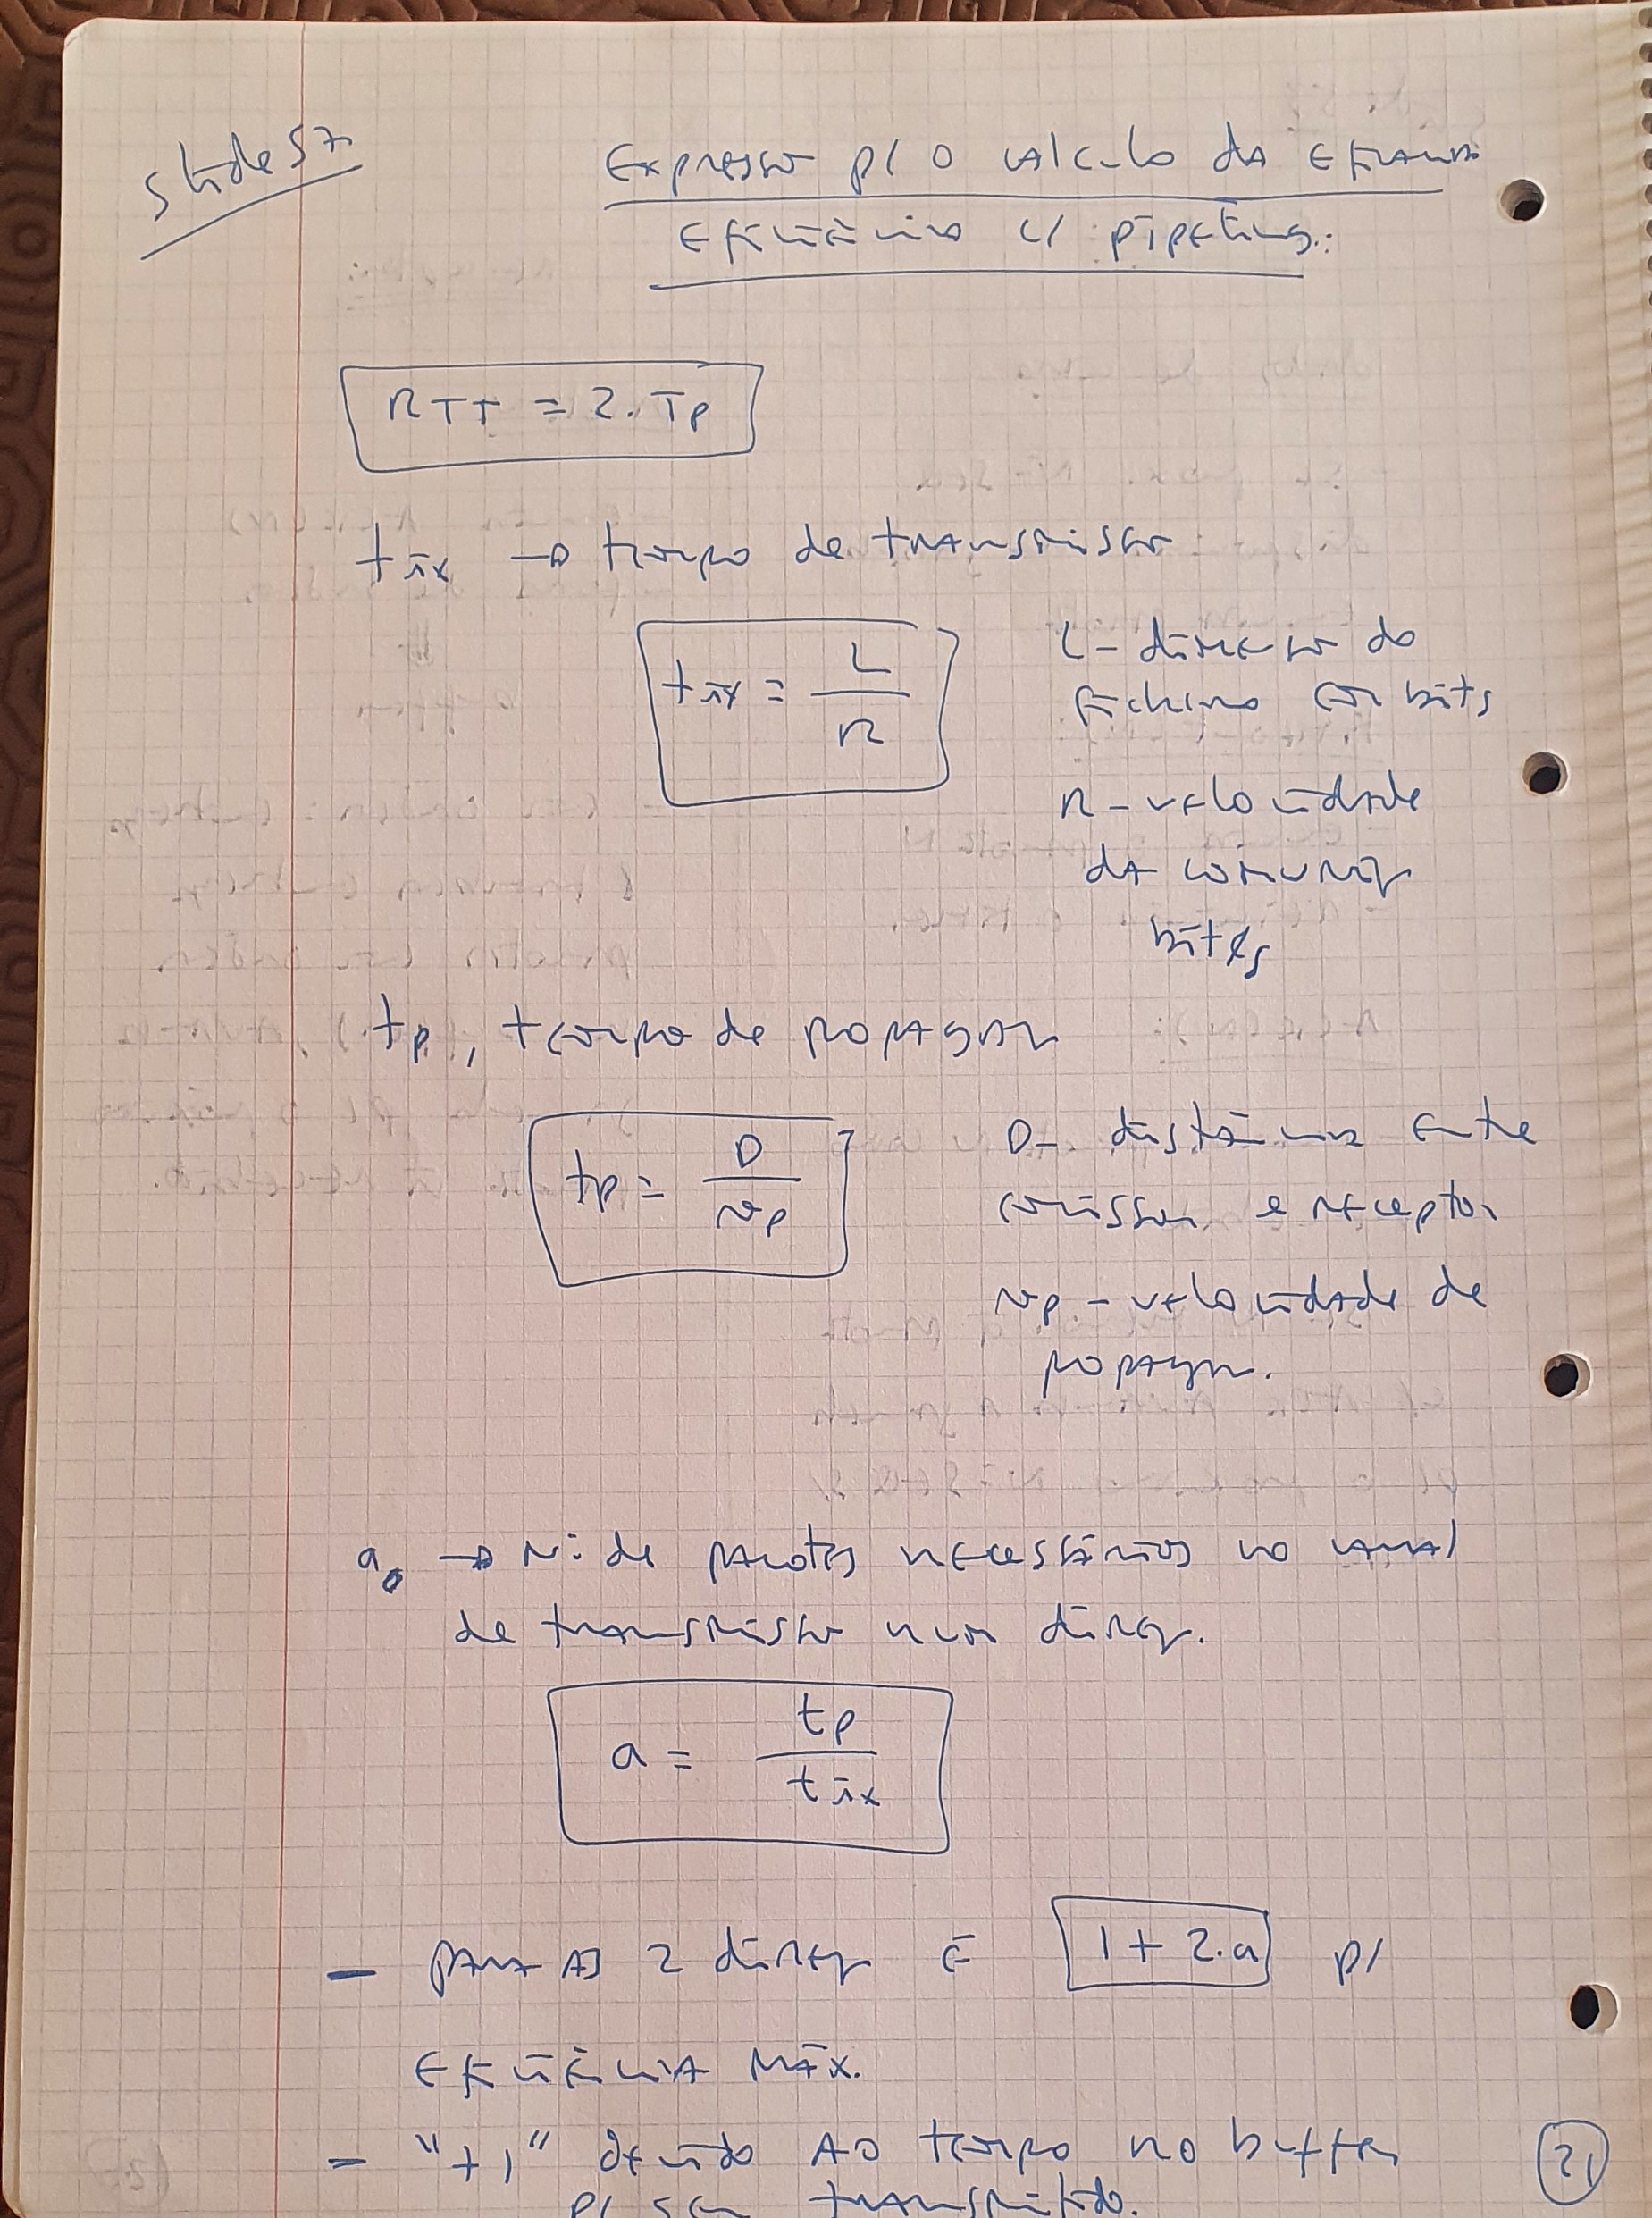 slide 57
Expressão p/ o cálculo da eficiência
eficiência c/ pipelining:
RTT = 2. Tp
t tx → tempo de transmissão
t tx = L / R
L - dimensão do
ficheiro em bits
R - velocidade
da comunicação
bits/s
tp, tempo de propagação
tp = D / vp
D - distância entre
emissor e receptor
vp - velocidade de
propagação.
a → Nº de pacotes necessários no canal
de transmissão num direção.
a = tp / t tx
- para as 2 direção é 1 + 2.a p/
eficiência máx.
- "+1" devido ao tempo no buffer
p/ ser transmitido.
21